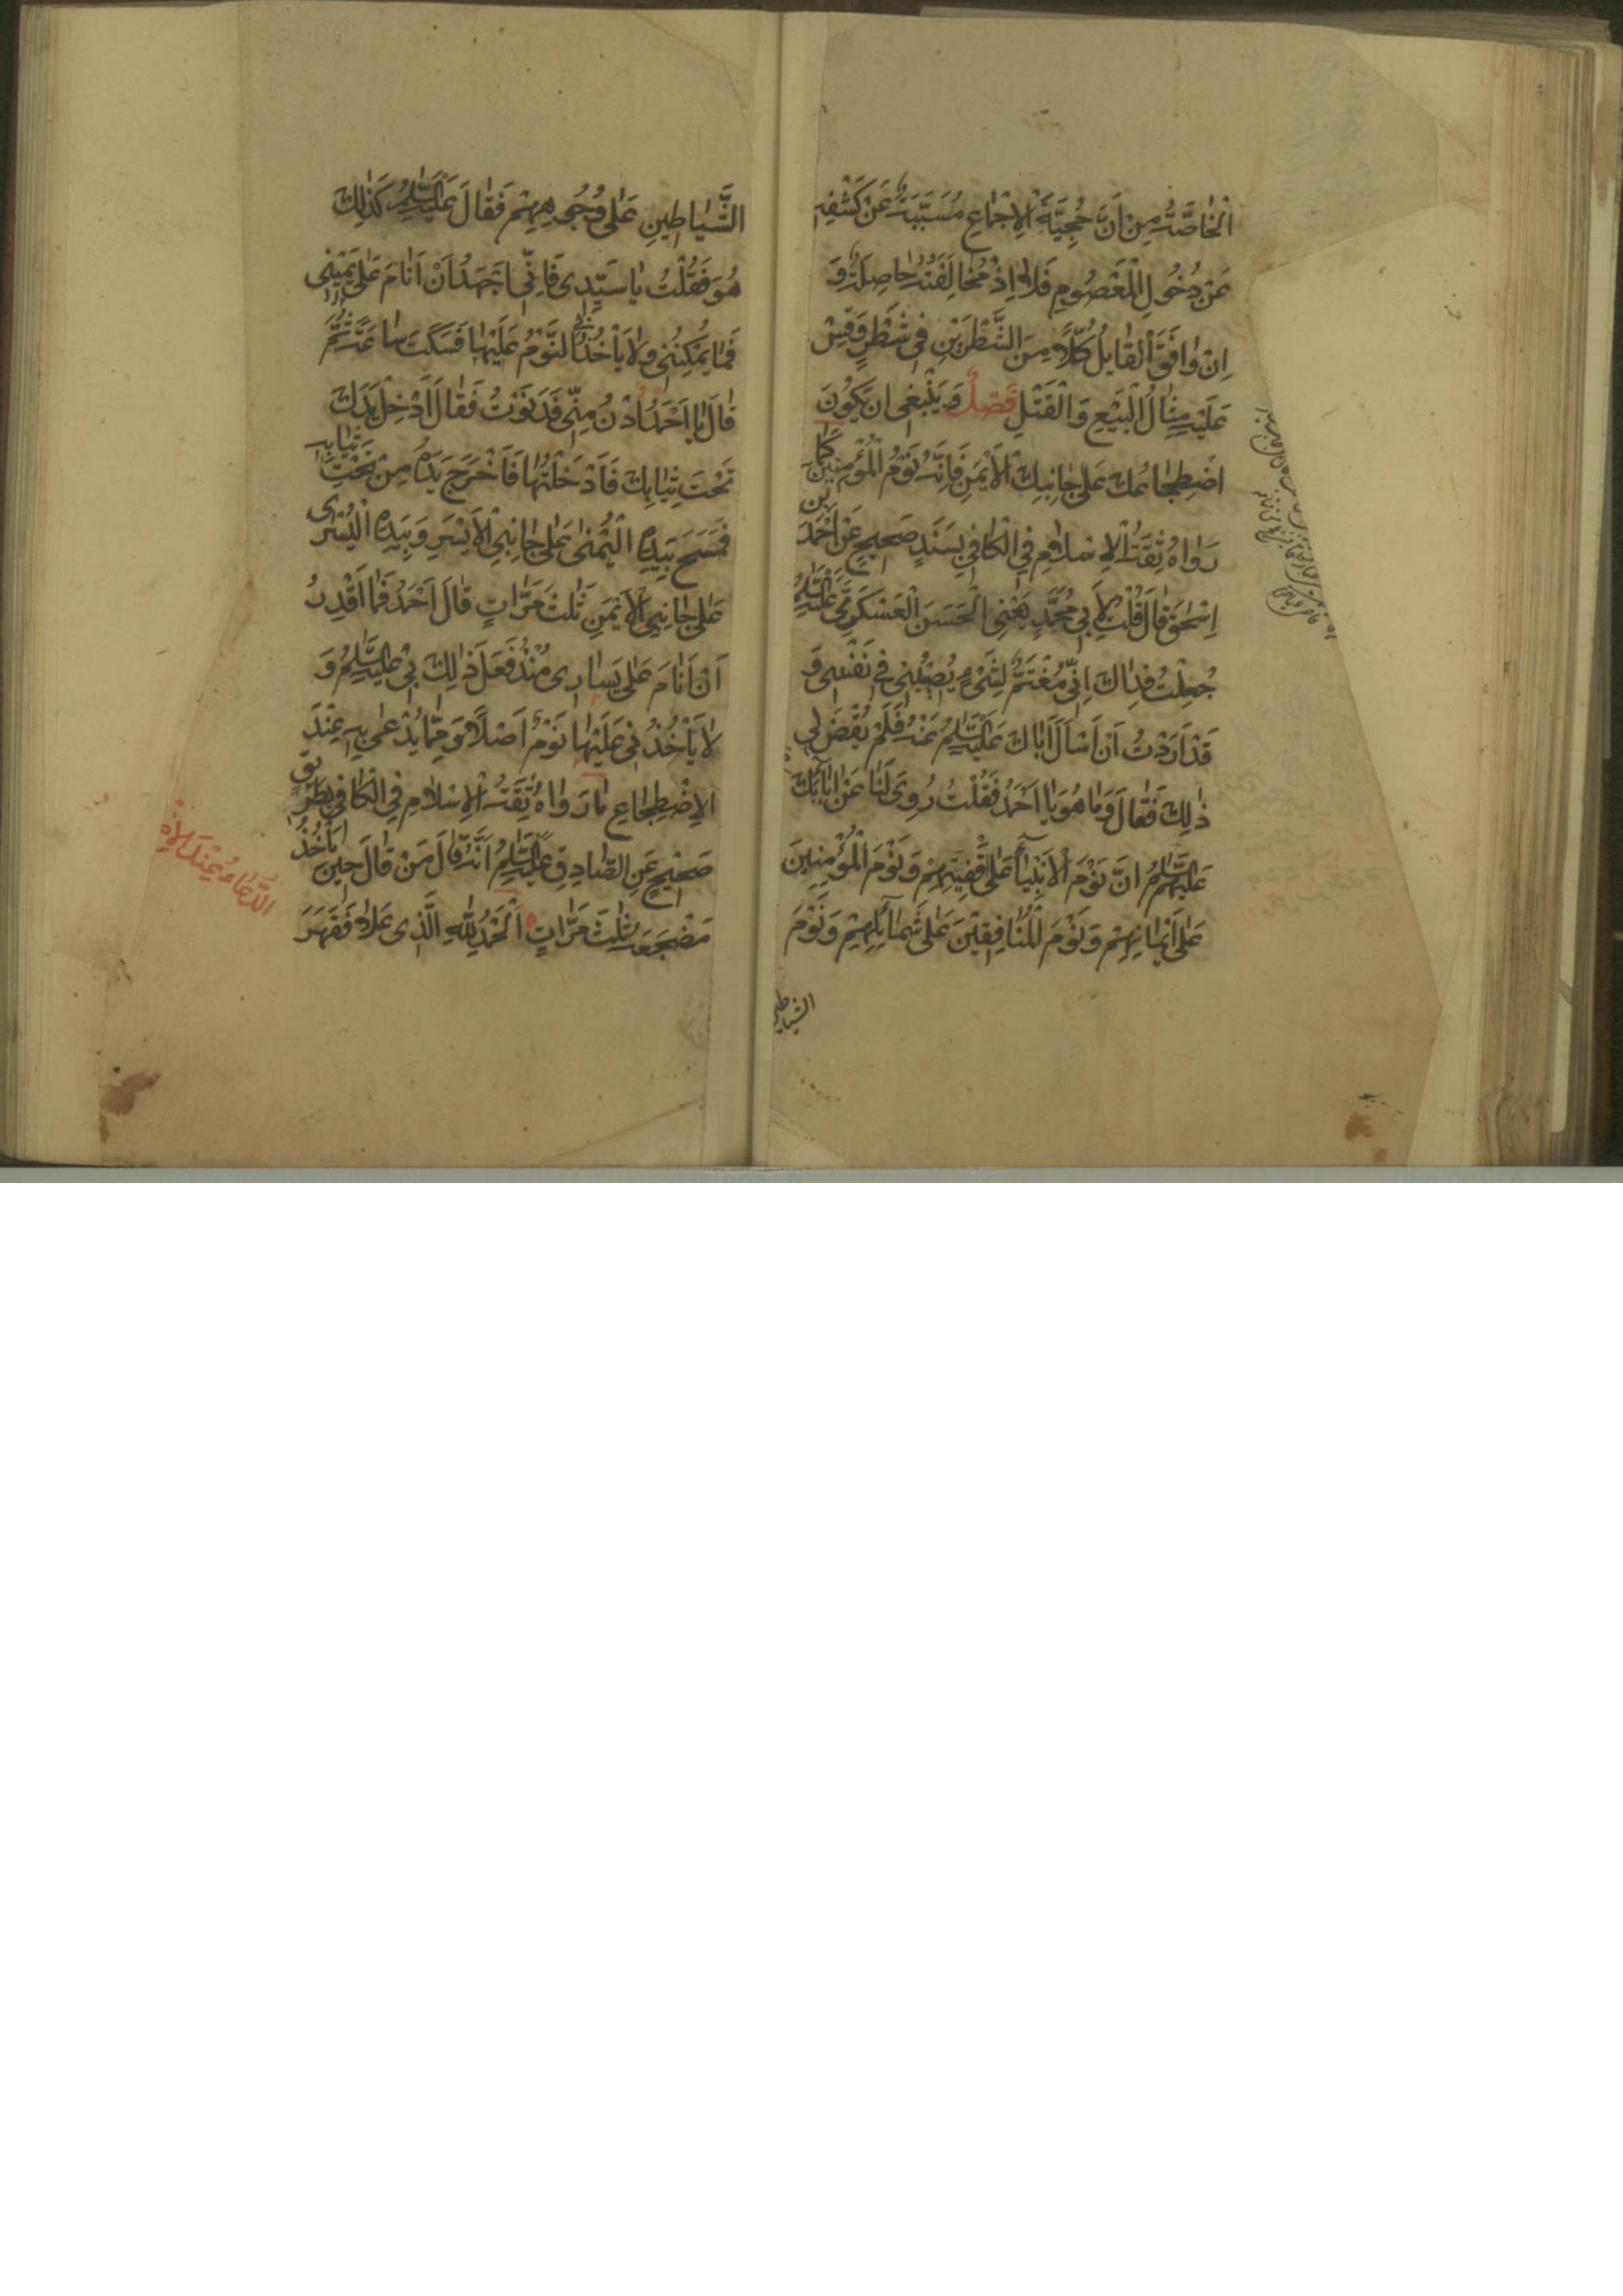 اَلْخاصَّةُ مِنْ اَنَّ حُجِّيَّةَ الْاِجْماعِ مُسَبَّبَةٌ عَنْ كَشْفِهِ
عَنْ دُخُولِ الْمَعْصُومِ فَلا اِذْ مُخالَفَتُهُ حاصِلَةٌ وَ
اِنْ وافَقَ الْقايِلُ كُلًّا مِنَ الشَّطْرَيْنِ فى شَطْرٍ وَقِسْ
عَلَيْهِ مِثالَ الْبَيْعِ وَ الْقَتْلِ فَصْلٌ وَ يَنْبَغى ان يَكُونَ
اضْطِجاعُكَ عَلى جانِبِكَ الْاَيْمَنِ فَاِنَّهُ نَوْمُ الْمُؤْمِنينَ كَما
رَواهُ ثِقَةُ الْاِسْلامِ فِي الْكافي بِسَنَدٍ صَحيحٍ عَنْ اَحْمَدَ بْنِ
اِسْحقَ قالَ قُلْتُ لِاَبي مُحَمَّدٍ يَعْنِى الْحَسَنَ الْعَسْكَرِىَّ عَلَيْهِ السَّلامُ
جُعِلْتُ فِداكَ اِنّى مُغْتَمٌّ لِشَىْءٍ يُصيبُنى فى نَفْسى وَ
قَدْ اَرَدْتُ اَنْ اَسْاَلَ اَباكَ عَلَيْهِ السَّلامُ عَنْهُ فَلَمْ يُقْضَ لى
ذلِكَ فَقالَ وَما هُوَ يا اَحْمَدُ فَقُلْتُ رُوِىَ لَنا عَنْ ابائِكَ
عَلَيْهِمُ السَّلامُ انَّ نَوْمَ الْاَنْبِياءِ عَلى اَقْفِيَتِهِمْ وَ نَوْمَ الْمُؤْمِنينَ
عَلى اَيْمانِهِمْ وَ نَوْمَ الْمُنافِقينَ عَلى شَمائِلِهِمْ وَ نَوْمَ
الشياطين
الشَّياطينِ عَلى وُجُوهِهِمْ فَقالَ عَلَيْهِ السَّلامُ كَذلِكَ
هُوَ فَقُلْتُ يا سَيِّدى فَاِنّى اَجْهَدُ اَنْ اَنامَ عَلى يَمينى
فَما يُمْكِنُنى وَلا يَأْخُذُنى النَّوْمُ عَلَيْها فَسَكَتَ ساعَةً ثُمَّ
قالَ يا اَحْمَدُ اُدْنُ مِنّى فَدَنَوْتُ فَقالَ اَدْخِلْ يَدَكَ
تَحْتَ ثِيابِكَ فَاَدْخَلْتُها فَاَخْرَجَ يَدَهُ مِنْ تَحْتِ ثِيابِهِ
فَمَسَحَ بِيَدِهِ الْيُمْنى عَلى جانِبِى الْاَيْسَرِ وَ بِيَدِهِ الْيُسْرى
عَلى جانِبِى الْاَيْمَنِ ثَلثَ مَرّاتٍ قالَ اَحْمَدُ فَما اَقْدِرُ
اَنْ اَنامَ عَلى يَسارى مُنْذُ فَعَلَ ذلِكَ بى عَلَيْهِ السَّلامُ وَ
لا يَأْخُذُنى عَلَيْها نَوْمٌ اَصْلًا وَ مِمّا يُدْعى بِهِ عِنْدَ
الْاِضْطِجاعِ ما رَواهُ ثِقَةُ الْاِسْلامِ فِي الْكافي بِطَريقٍ
صَحيحٍ عَنِ الصّادِقِ عَلَيْهِ السَّلامُ اَنَّهُ قالَ مَنْ قالَ حينَ يَأْخُذُ
مَضْجَعَهُ ثَلثَ مَرّاتٍ اَلْحَمْدُ لِلّهِ الَّذى عَلا فَقَهَرَ